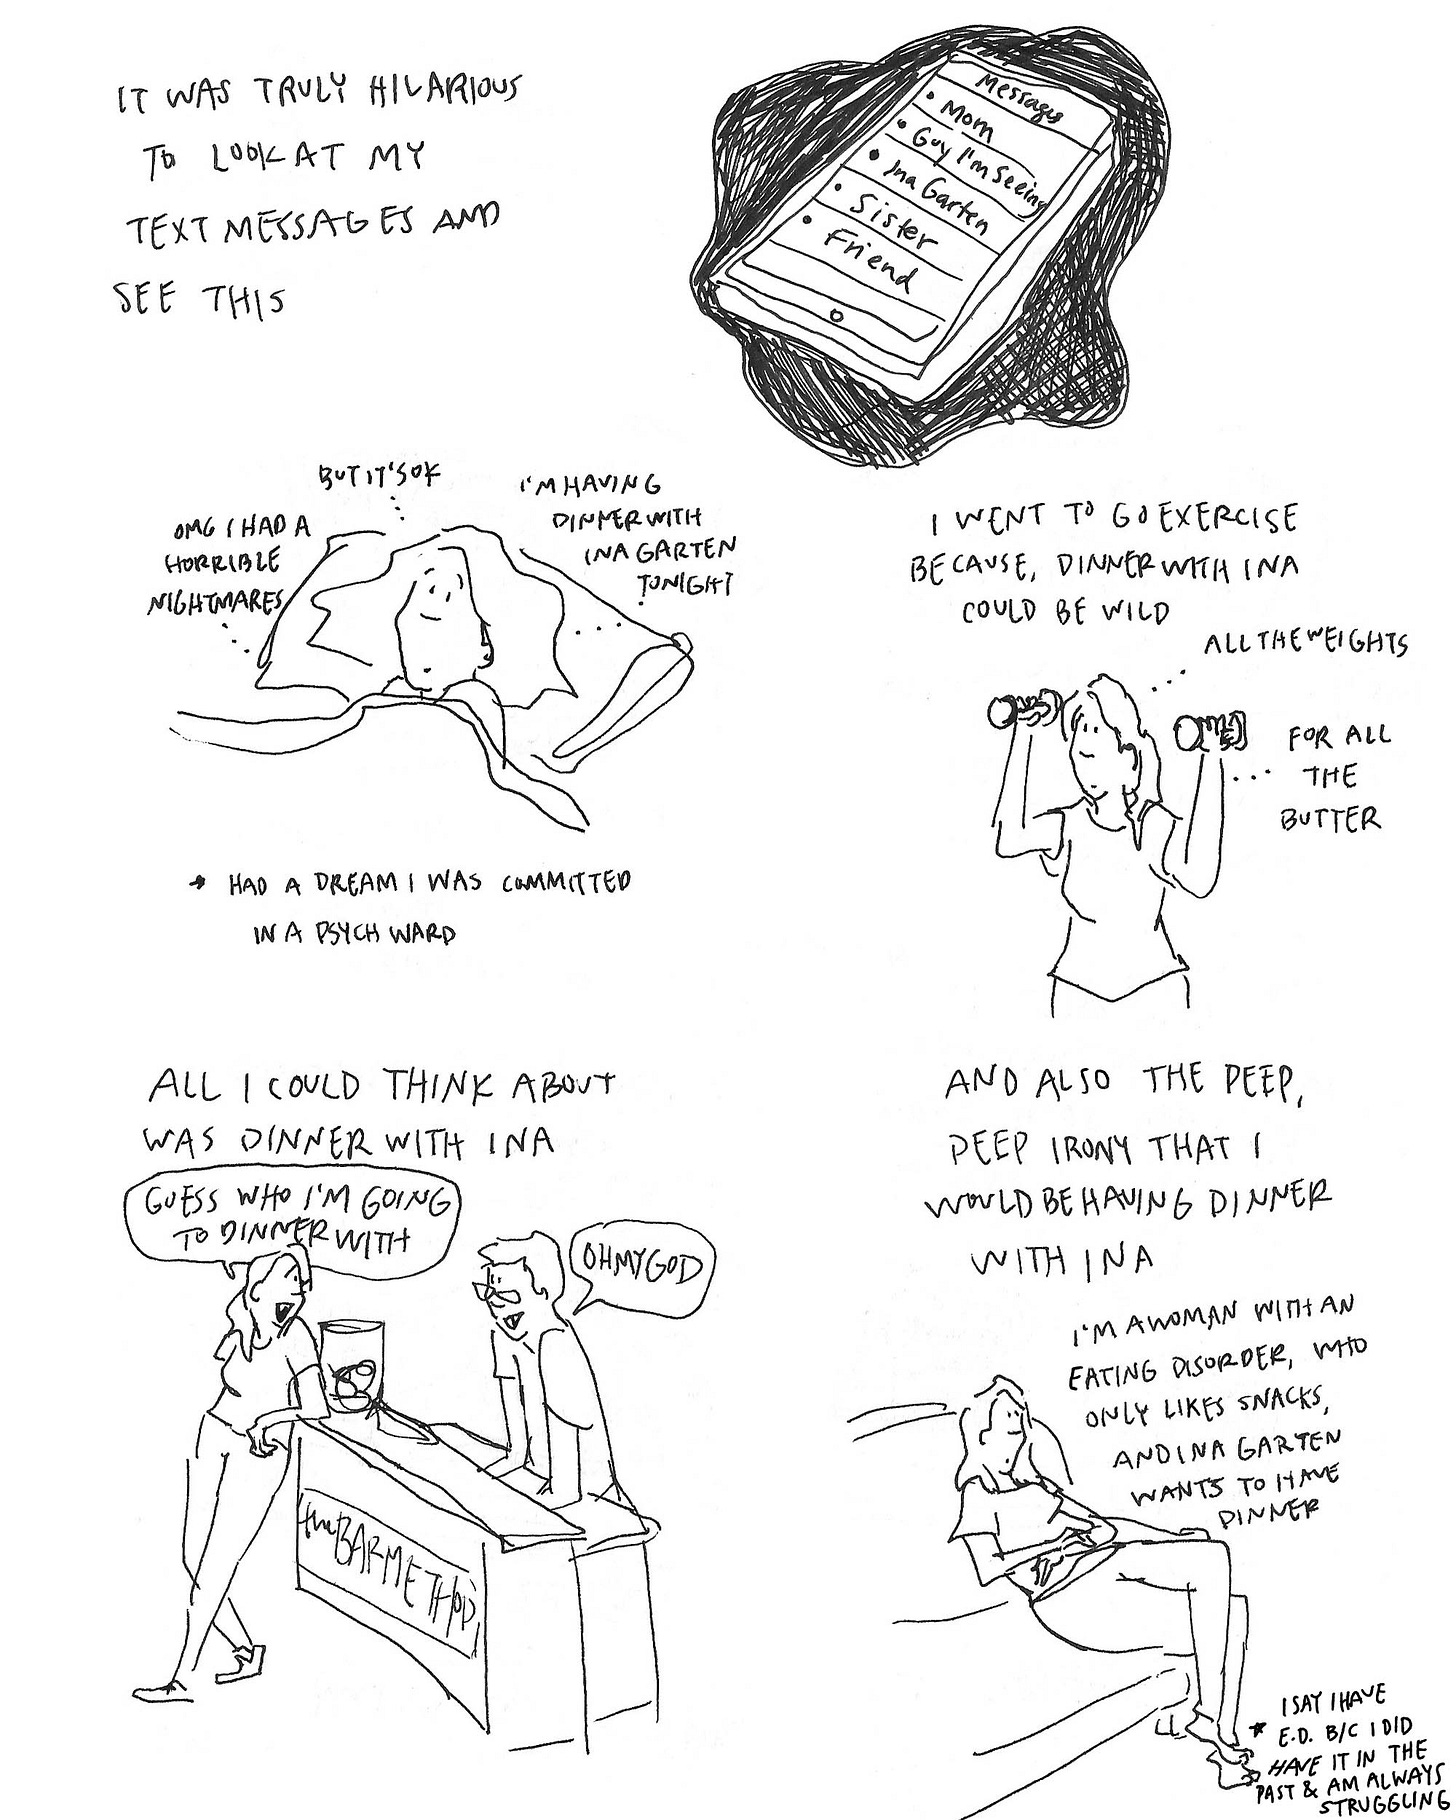 IT WAS TRULY HILARIOUS
TO LOOK AT MY
TEXT MESSAGES AND
SEE THIS
Messages
• Mom
• Guy I'm Seeing
• Ina Garten
• Sister
• Friend
OMG I HAD A
HORRIBLE
NIGHTMARES
BUT IT'S OK
I'M HAVING
DINNER WITH
INA GARTEN
TONIGHT
* HAD A DREAM I WAS COMMITTED
IN A PSYCH WARD
I WENT TO GO EXERCISE
BECAUSE, DINNER WITH INA
COULD BE WILD
ALL THE WEIGHTS
FOR ALL
THE
BUTTER
ALL I COULD THINK ABOUT
WAS DINNER WITH INA
GUESS WHO I'M GOING
TO DINNER WITH
OH MY GOD
the BAR METHOD
AND ALSO THE DEEP,
DEEP IRONY THAT I
WOULD BE HAVING DINNER
WITH INA
I'M A WOMAN WITH AN
EATING DISORDER, WHO
ONLY LIKES SNACKS,
AND INA GARTEN
WANTS TO HAVE
DINNER
I SAY I HAVE
* E.D. B/C I DID
HAVE IT IN THE
PAST & AM ALWAYS
STRUGGLING